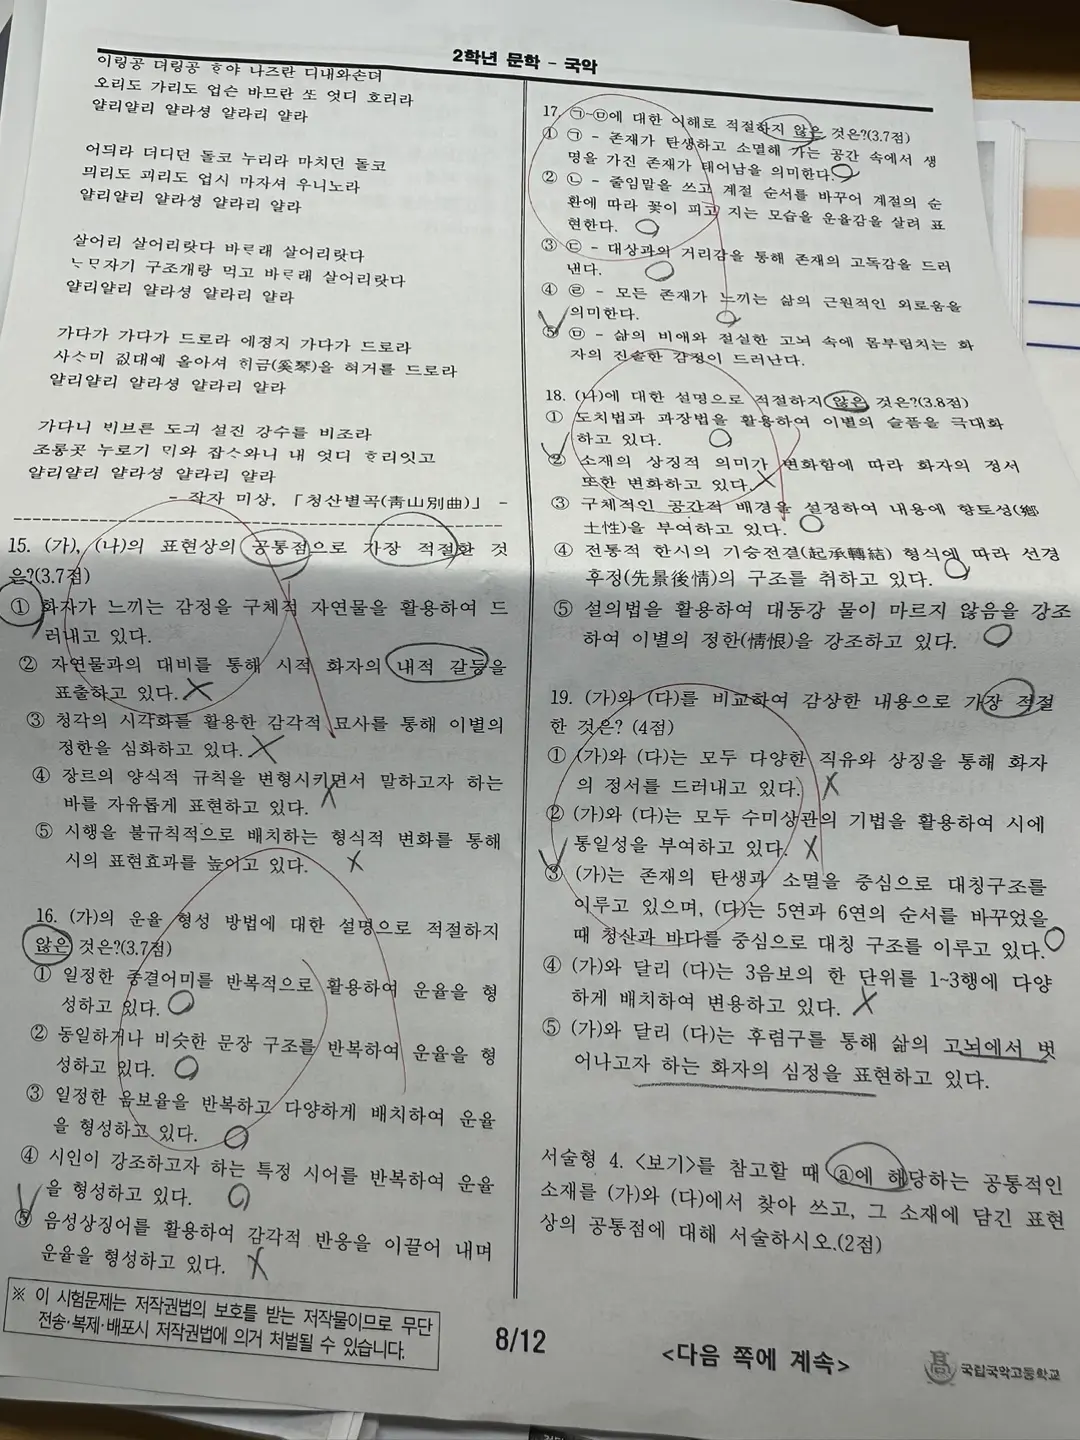 2학년 문학 - 국악
이링공 뎌링공 ᄒᆞ야 나즈란 디내와손뎌
오리도 가리도 업슨 바므란 또 엇디 호리라
얄리얄리 얄라셩 얄라리 얄라
어듸라 더디던 돌코 누리라 마치던 돌코
믜리도 괴리도 업시 마자셔 우니노라
얄리얄리 얄라셩 얄라리 얄라
살어리 살어리랏다 바ᄅᆞ래 살어리랏다
ᄂᆞᄆᆞ자기 구조개랑 먹고 바ᄅᆞ래 살어리랏다
얄리얄리 얄라셩 얄라리 얄라
가다가 가다가 드로라 에졍지 가다가 드로라
사ᄉᆞ미 짒대예 올아셔 ᄒᆡ금(奚琴)을 혀거를 드로라
얄리얄리 얄라셩 얄라리 얄라
가다니 ᄇᆡ브른 도긔 설진 강수를 비조라
조롱곳 누로기 ᄆᆡ와 잡ᄉᆞ와니 내 엇디 ᄒᆞ리잇고
얄리얄리 얄라셩 얄라리 얄라
- 작자 미상, 「청산별곡(靑山別曲)」 -
15. (가), (나)의 표현상의 공통점으로 가장 적절한 것
은?(3.7점)
① 화자가 느끼는 감정을 구체적 자연물을 활용하여 드
러내고 있다.
② 자연물과의 대비를 통해 시적 화자의 내적 갈등을
표출하고 있다.
③ 청각의 시각화를 활용한 감각적 묘사를 통해 이별의
정한을 심화하고 있다.
④ 장르의 양식적 규칙을 변형시키면서 말하고자 하는
바를 자유롭게 표현하고 있다.
⑤ 시행을 불규칙적으로 배치하는 형식적 변화를 통해
시의 표현효과를 높이고 있다.
16. (가)의 운율 형성 방법에 대한 설명으로 적절하지
않은 것은?(3.7점)
① 일정한 종결어미를 반복적으로 활용하여 운율을 형
성하고 있다.
② 동일하거나 비슷한 문장 구조를 반복하여 운율을 형
성하고 있다.
③ 일정한 음보율을 반복하고 다양하게 배치하여 운율
을 형성하고 있다.
④ 시인이 강조하고자 하는 특정 시어를 반복하여 운율
을 형성하고 있다.
⑤ 음성상징어를 활용하여 감각적 반응을 이끌어 내며
운율을 형성하고 있다.
※ 이 시험문제는 저작권법의 보호를 받는 저작물이므로 무단
전송·복제·배포시 저작권법에 의거 처벌될 수 있습니다.
17. ㉠~㉤에 대한 이해로 적절하지 않은 것은?(3.7점)
① ㉠ - 존재가 탄생하고 소멸해 가는 공간 속에서 생
명을 가진 존재가 태어남을 의미한다.
② ㉡ - 줄임말을 쓰고 계절 순서를 바꾸어 계절의 순
환에 따라 꽃이 피고 지는 모습을 운율감을 살려 표
현한다.
③ ㉢ - 대상과의 거리감을 통해 존재의 고독감을 드러
낸다.
④ ㉣ - 모든 존재가 느끼는 삶의 근원적인 외로움을
의미한다.
⑤ ㉤ - 삶의 비애와 절실한 고뇌 속에 몸부림치는 화
자의 진솔한 감정이 드러난다.
18. (나)에 대한 설명으로 적절하지 않은 것은?(3.8점)
① 도치법과 과장법을 활용하여 이별의 슬픔을 극대화
하고 있다.
② 소재의 상징적 의미가 변화함에 따라 화자의 정서
또한 변화하고 있다.
③ 구체적인 공간적 배경을 설정하여 내용에 향토성(鄕
土性)을 부여하고 있다.
④ 전통적 한시의 기승전결(起承轉結) 형식에 따라 선경
후정(先景後情)의 구조를 취하고 있다.
⑤ 설의법을 활용하여 대동강 물이 마르지 않음을 강조
하여 이별의 정한(情恨)을 강조하고 있다.
19. (가)와 (다)를 비교하여 감상한 내용으로 가장 적절
한 것은? (4점)
① (가)와 (다)는 모두 다양한 직유와 상징을 통해 화자
의 정서를 드러내고 있다.
② (가)와 (다)는 모두 수미상관의 기법을 활용하여 시에
통일성을 부여하고 있다.
③ (가)는 존재의 탄생과 소멸을 중심으로 대칭구조를
이루고 있으며, (다)는 5연과 6연의 순서를 바꾸었을
때 청산과 바다를 중심으로 대칭 구조를 이루고 있다.
④ (가)와 달리 (다)는 3음보의 한 단위를 1~3행에 다양
하게 배치하여 변용하고 있다.
⑤ (가)와 달리 (다)는 후렴구를 통해 삶의 고뇌에서 벗
어나고자 하는 화자의 심정을 표현하고 있다.
서술형 4. <보기>를 참고할 때 ⓐ에 해당하는 공통적인
소재를 (가)와 (다)에서 찾아 쓰고, 그 소재에 담긴 표현
상의 공통점에 대해 서술하시오.(2점)
8/12
<다음 쪽에 계속>
국립국악고등학교